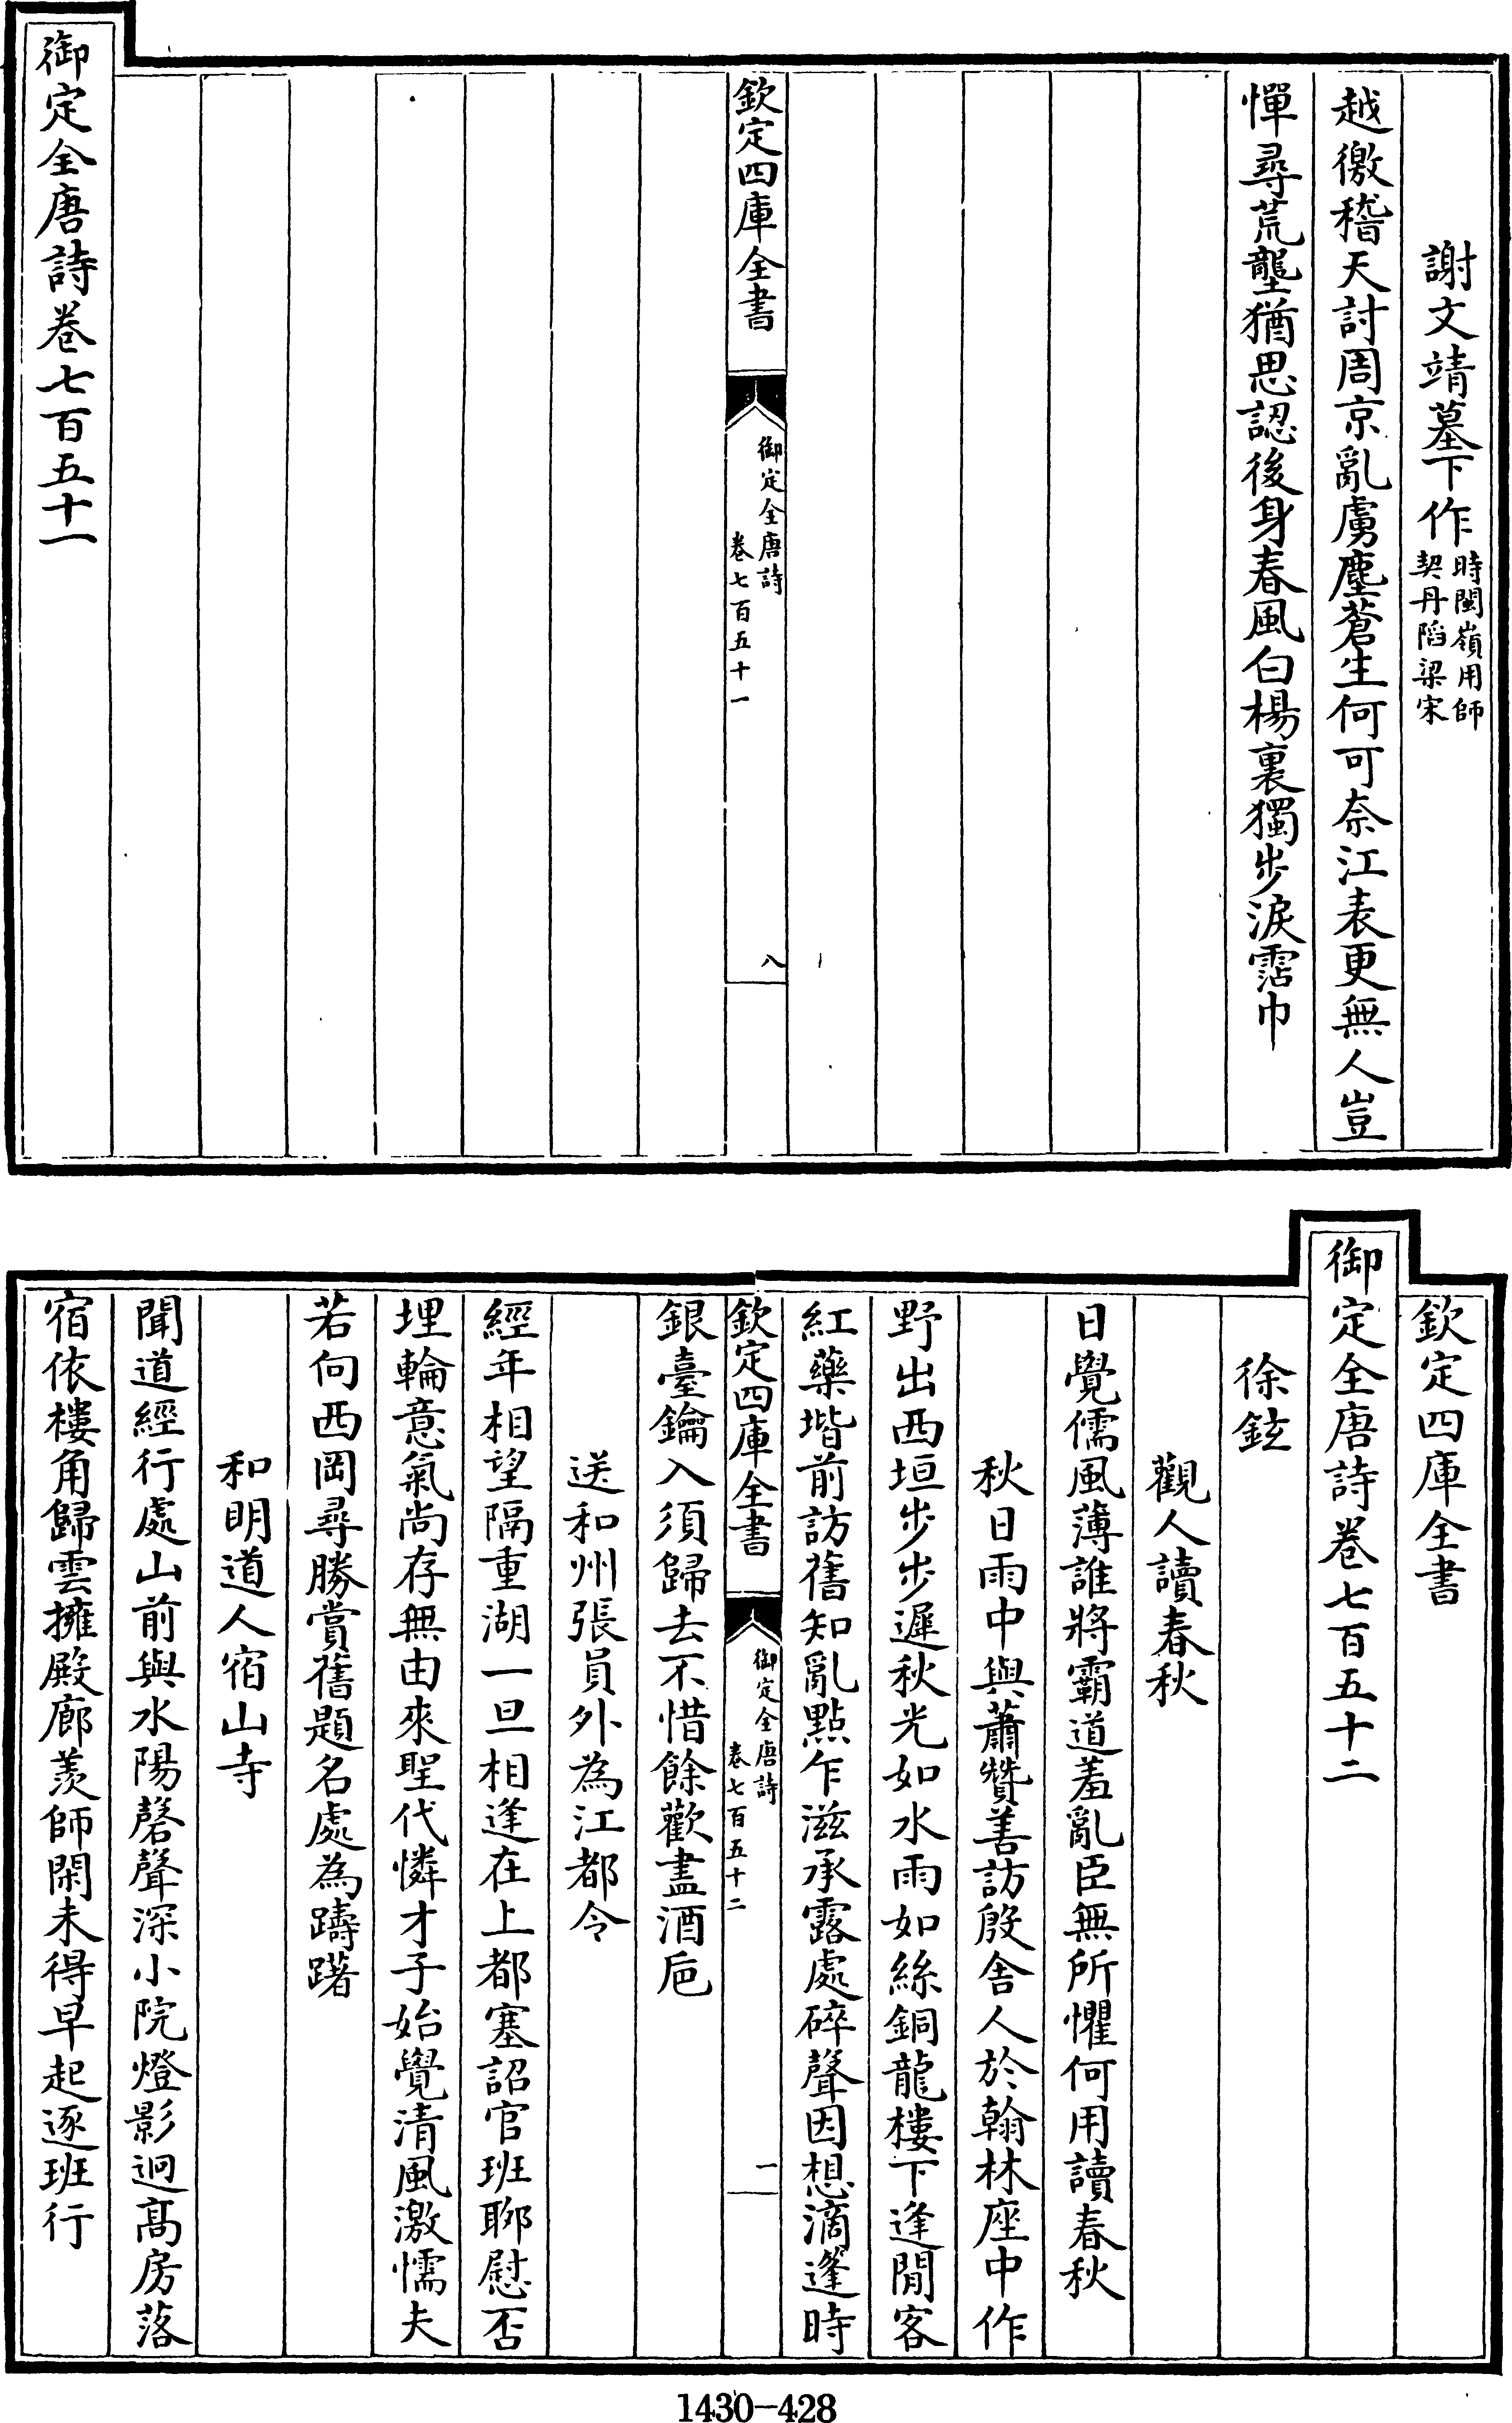 謝文靖墓下作時閩嶺用師契丹陷梁宋
越徼稽天討周京亂虜塵蒼生何可奈江表更無人豈
憚尋荒壟猶思認後身春風白楊裏獨步淚霑巾
欽定四庫全書
御定全唐詩
卷七百五十一
八
御定全唐詩卷七百五十一
欽定四庫全書
御定全唐詩卷七百五十二
徐鉉
觀人讀春秋
日覺儒風薄誰將霸道羞亂臣無所懼何用讀春秋
秋日雨中與蕭贊善訪殷舍人於翰林座中作
野出西垣步步遲秋光如水雨如絲銅龍樓下逢閒客
紅藥堦前訪舊知亂點乍滋承露處碎聲因想滴蓬時
欽定四庫全書
御定全唐詩
卷七百五十二
一
銀臺鑰入須歸去不惜餘歡盡酒巵
送和州張員外為江都令
經年相望隔重湖一旦相逢在上都塞詔官班聊慰否
埋輪意氣尚存無由來聖代憐才子始覺清風激懦夫
若向西岡尋勝賞舊題名處為躊躇
和明道人宿山寺
聞道經行處山前與水陽磬聲深小院燈影迥髙房落
宿依樓角歸雲擁殿廊羨師閑未得早起逐班行
1430-428